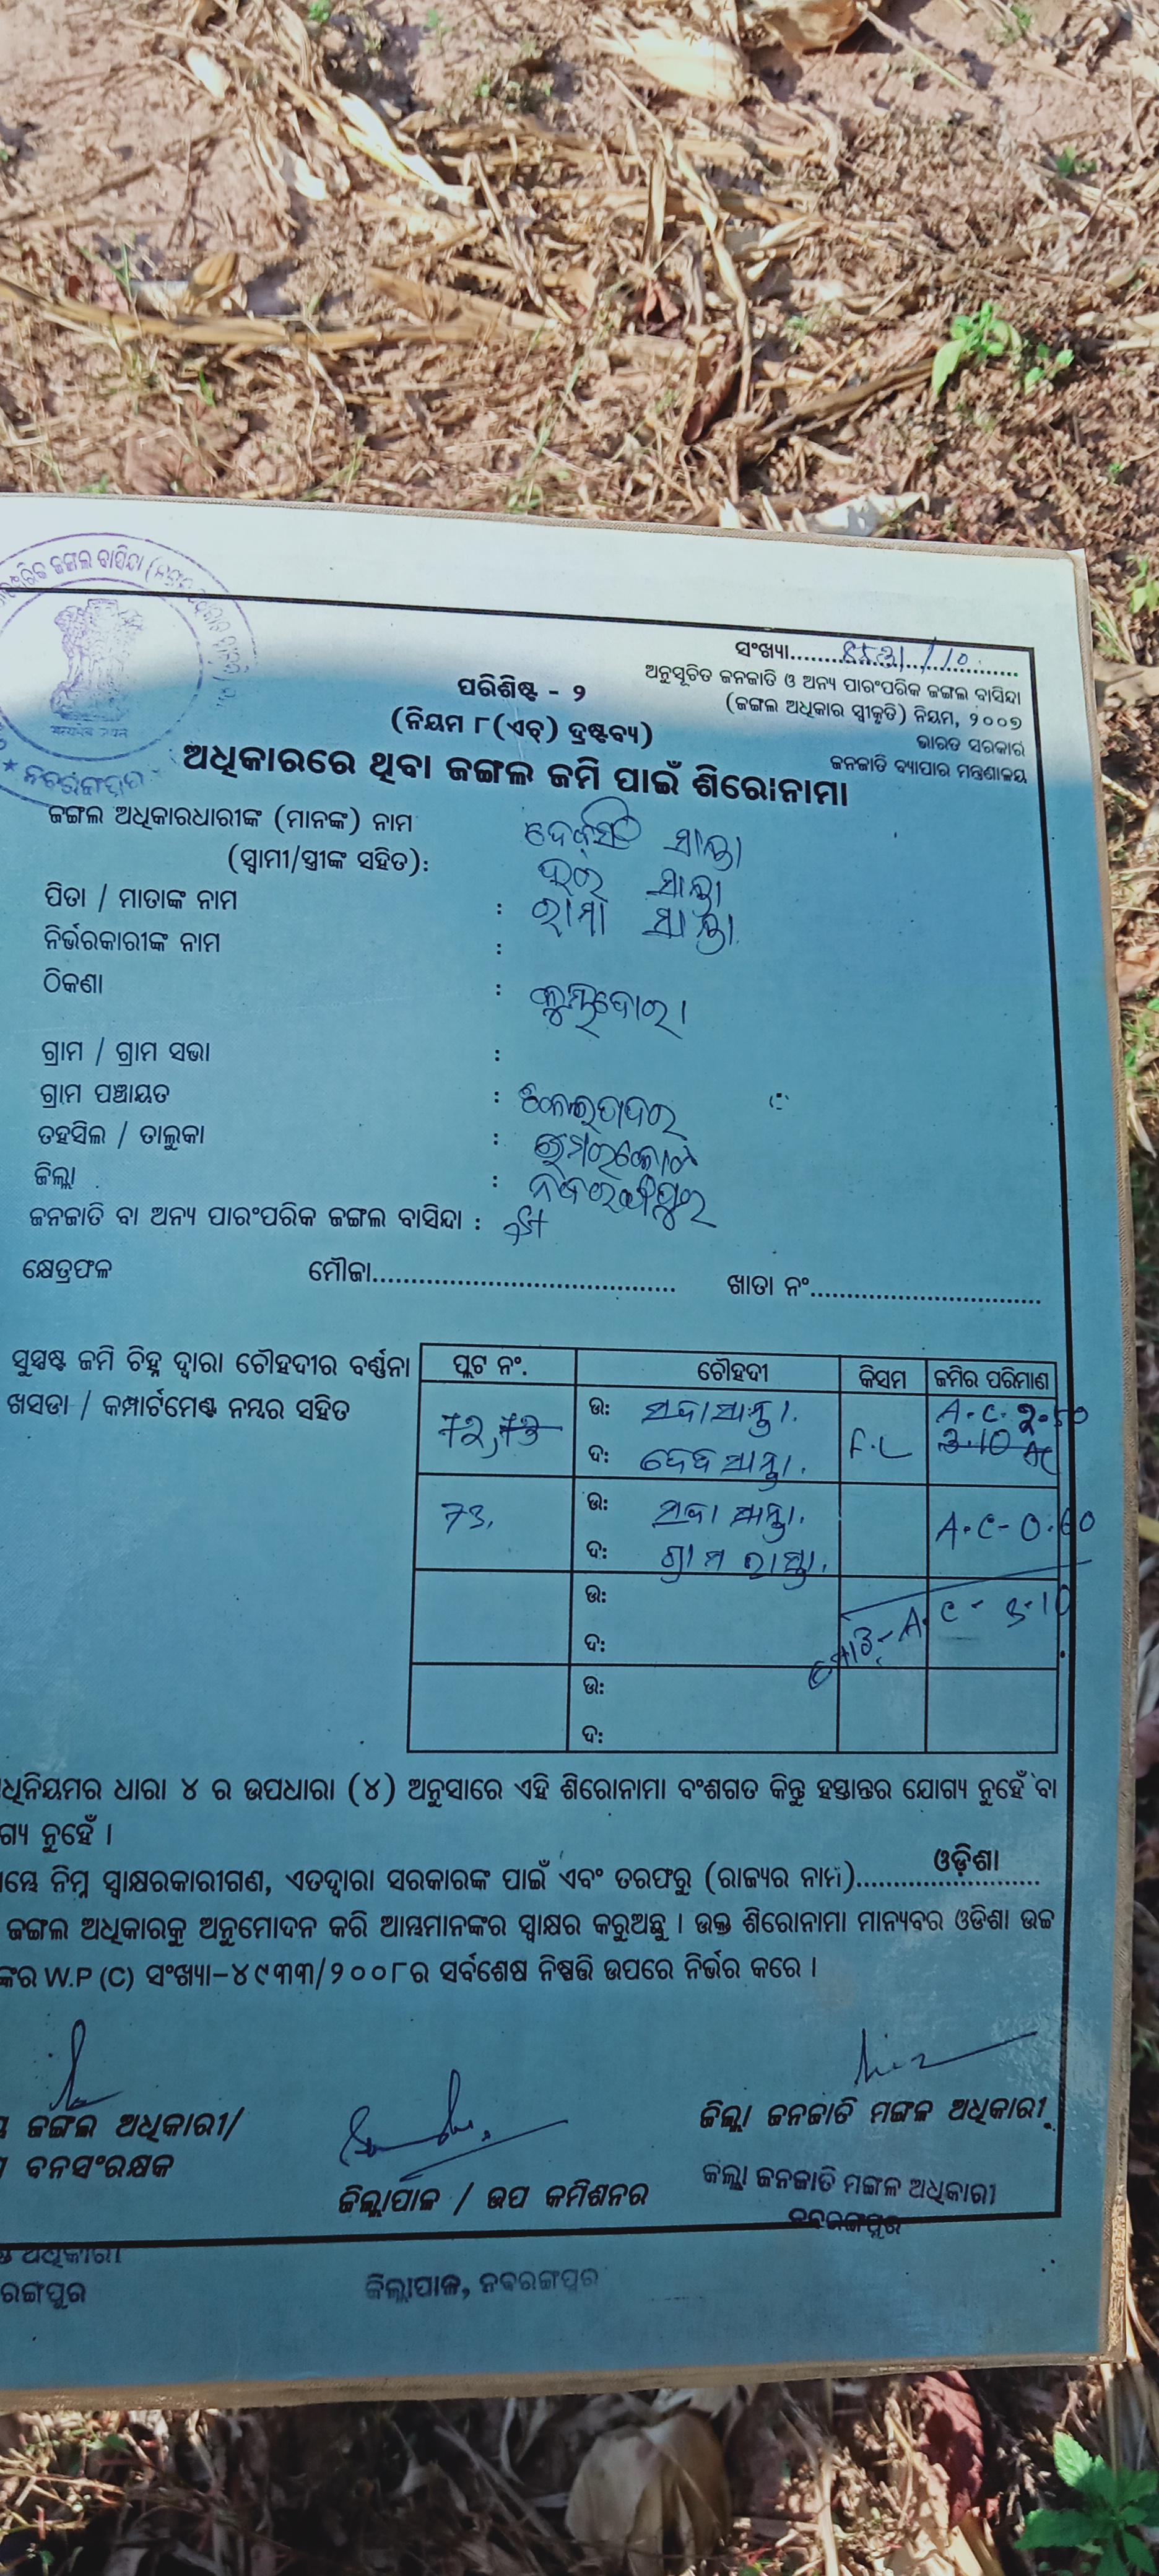 ଜଙ୍ଗଲ ବାସିନ୍ଦା
ନବରଙ୍ଗପୁର
ସଂଖ୍ୟା
ଅନୁସୂଚିତ ଜନଜାତି ଓ ଅନ୍ୟ ପାରଂପରିକ ଜଙ୍ଗଲ ବାସିନ୍ଦା
(ଜଙ୍ଗଲ ଅଧିକାର ସ୍ୱୀକୃତି) ନିୟମ, ୨୦୦୭
ଭାରତ ସରକାର
ଜନଜାତି ବ୍ୟାପାର ମନ୍ତ୍ରଣାଳୟ
ପରିଶିଷ୍ଟ - ୨
(ନିୟମ ୮(ଏଚ୍) ଦ୍ରଷ୍ଟବ୍ୟ)
ଅଧିକାରରେ ଥିବା ଜଙ୍ଗଲ ଜମି ପାଇଁ ଶିରୋନାମା
ଜଙ୍ଗଲ ଅଧିକାରଧାରୀଙ୍କ (ମାନଙ୍କ) ନାମ
(ସ୍ୱାମୀ/ସ୍ତ୍ରୀଙ୍କ ସହିତ):
ପିତା / ମାତାଙ୍କ ନାମ : ରାମା ସାନ୍ତା
ନିର୍ଭରକାରୀଙ୍କ ନାମ :
ଠିକଣା :
ଗ୍ରାମ / ଗ୍ରାମ ସଭା :
ଗ୍ରାମ ପଞ୍ଚାୟତ :
ତହସିଲ / ତାଲୁକା : ଉମରକୋଟ
ଜିଲ୍ଲା : ନବରଙ୍ଗପୁର
ଜନଜାତି ବା ଅନ୍ୟ ପାରଂପରିକ ଜଙ୍ଗଲ ବାସିନ୍ଦା : ST
କ୍ଷେତ୍ରଫଳ ମୌଜା........................................ ଖାତା ନଂ..............................
ସୁସ୍ପଷ୍ଟ ଜମି ଚିହ୍ନ ଦ୍ୱାରା ଚୌହଦୀର ବର୍ଣ୍ଣନା
ଖସଡା / କମ୍ପାର୍ଟମେଣ୍ଟ ନମ୍ବର ସହିତ
ପ୍ଲଟ ନଂ. ଚୌହଦୀ କିସମ ଜମିର ପରିମାଣ
72, 73 ଉ: ସଦା ସାନ୍ତା. F.L A.C. 2.50
ଦ: ସାନ୍ତା. 3.10 AC
73. ଉ: ସଦା ସାନ୍ତା. A.C-0.60
ଦ: ଗ୍ରାମ ରାସ୍ତା.
ଉ: A.C- 3.10
ଦ:
ଉ:
ଦ:
ଧିନିୟମର ଧାରା ୪ ର ଉପଧାରା (୪) ଅନୁସାରେ ଏହି ଶିରୋନାମା ବଂଶଗତ କିନ୍ତୁ ହସ୍ତାନ୍ତର ଯୋଗ୍ୟ ନୁହେଁ ବା
ଗ୍ୟ ନୁହେଁ ।
ମ୍ଭେ ନିମ୍ନ ସ୍ୱାକ୍ଷରକାରୀଗଣ, ଏତଦ୍ୱାରା ସରକାରଙ୍କ ପାଇଁ ଏବଂ ତରଫରୁ (ରାଜ୍ୟର ନାମ)......ଓଡ଼ିଶା......
ଜଙ୍ଗଲ ଅଧିକାରକୁ ଅନୁମୋଦନ କରି ଆମ୍ଭମାନଙ୍କର ସ୍ୱାକ୍ଷର କରୁଅଛୁ । ଉକ୍ତ ଶିରୋନାମା ମାନ୍ୟବର ଓଡିଶା ଉଚ୍ଚ
ଙ୍କର W.P (C) ସଂଖ୍ୟା-୪୯୩୩/୨୦୦୮ର ସର୍ବଶେଷ ନିଷ୍ପତ୍ତି ଉପରେ ନିର୍ଭର କରେ ।
ଜଙ୍ଗଲ ଅଧିକାରୀ/
ବନସଂରକ୍ଷକ
ଜିଲ୍ଲାପାଳ / ଉପ କମିଶନର
ଜିଲ୍ଲା ଜନଜାତି ମଙ୍ଗଳ ଅଧିକାରୀ
ଜିଲ୍ଲା ଜନଜାତି ମଙ୍ଗଳ ଅଧିକାରୀ
ନବରଙ୍ଗପୁର
ଅଧିକାରୀ
ରଙ୍ଗପୁର
ଜିଲ୍ଲାପାଳ, ନବରଙ୍ଗପୁର